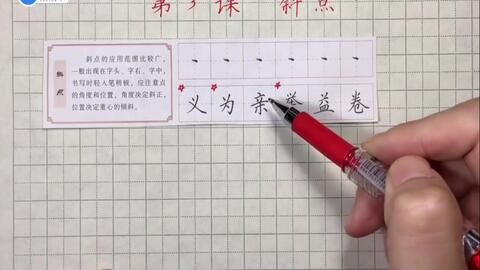 第3课 斜点
斜点
斜点的应用范围比较广，
一般出现在字头、字右、字中，
书写时轻入笔稍顿，应注意点
的角度和位置，角度决定斜正，
位置决定重心的倾斜。
义为亲举益卷